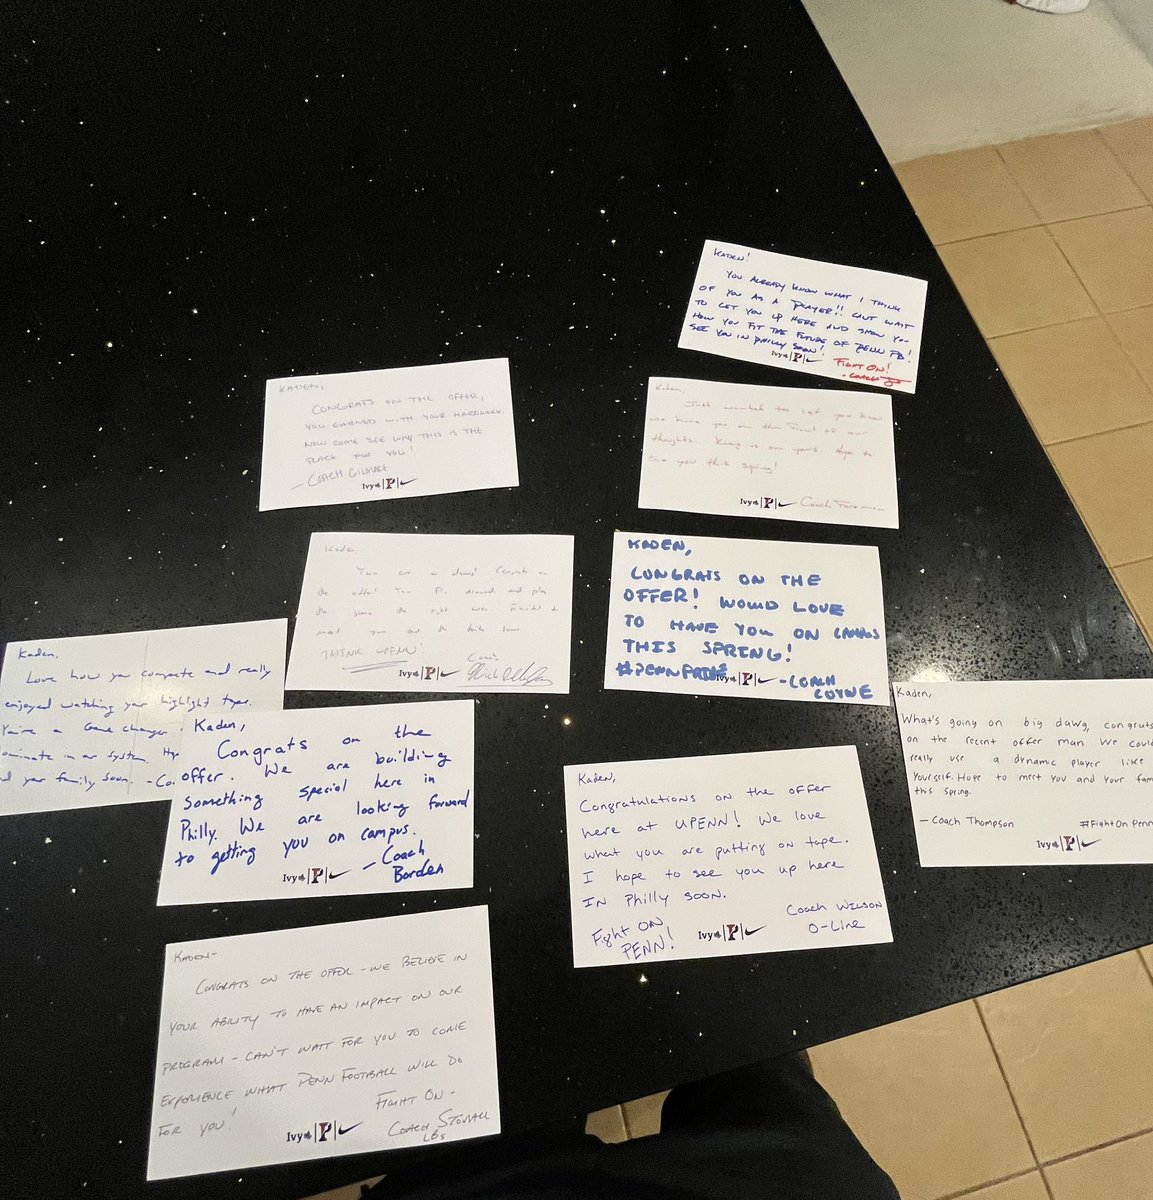 KADEN!
YOU ALREADY KNOW WHAT I THINK
OF YOU AS A PLAYER!! CAN'T WAIT
TO GET YOU UP HERE AND SHOW YOU
HOW YOU FIT THE FUTURE OF PENN FB!
SEE YOU IN PHILLY SOON!
Ivy P
FIGHT ON!
- COACH
KADEN,
CONGRATS ON THE OFFER,
YOU EARNED WITH YOUR HARDWORK.
NOW COME SEE WHY THIS IS THE
PLACE FOR YOU!
- COACH GILMORE
Ivy P
Kaden,
Just wanted to let you know
we have you in the front of our
thoughts. Keep
see you this spring!
Ivy P
Coach
Kaden
You are a dawg! Congrats on
the offer! You Fly Around and play
the game the right way.
meet you and the
THINK UPENN!
Coach
Ivy P
KADEN,
CONGRATS ON THE
OFFER! WOULD LOVE
TO HAVE YOU ON CAMPUS
THIS SPRING!
#PENNPRIDE
Ivy P
- COACH
COYNE
Kaden,
Love how you compete and really
enjoyed watching your highlight tape.
You're a Game changer
ominate in our system
d your family soon. - Co
Kaden,
Congrats on the
offer. We are building
something special here in
Philly. We are looking forward
to getting you on campus.
- Coach
Borden
Ivy P
Kaden,
Congratulations on the offer
here at UPENN! We love
what you are putting on tape.
I hope to see you up here
IN Philly soon.
Fight ON
PENN!
Ivy P
Coach Wilson
O-Line
Kaden,
What's going on big dawg, congrats
on the recent offer man we could
really use a dynamic player like
Yourself. Hope to meet you and your fam
this spring.
- Coach Thompson
#FightOnPenn
Ivy P
KADEN-
CONGRATS ON THE OFFER - WE BELIEVE IN
YOUR ABILITY TO HAVE AN IMPACT ON OUR
PROGRAM - CAN'T WAIT FOR YOU TO COME
EXPERIENCE WHAT PENN FOOTBALL WILL DO
FOR YOU!
FIGHT ON -
Ivy P
COACH STOVALL
LBs